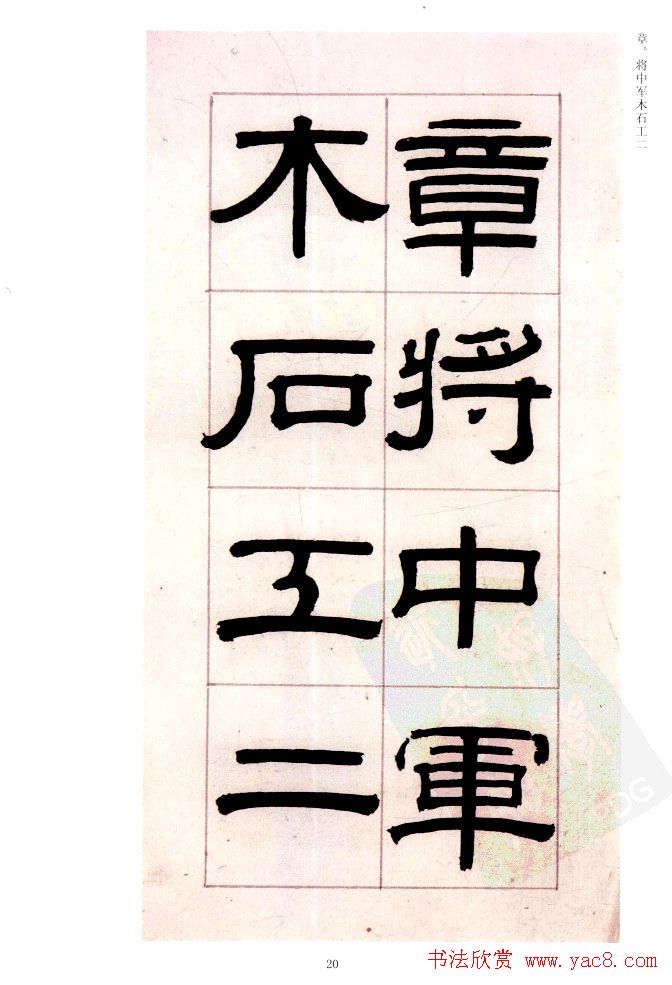 章。将中军木石工二
章將中軍
木石工二
20
书法欣赏 www.yac8.com